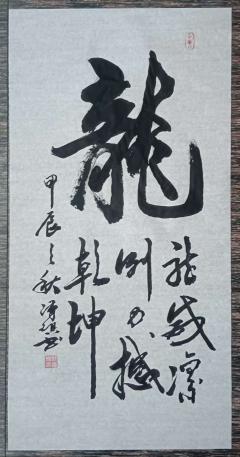 龍
龍威凛
冽力撼
乾坤
甲辰之秋
书